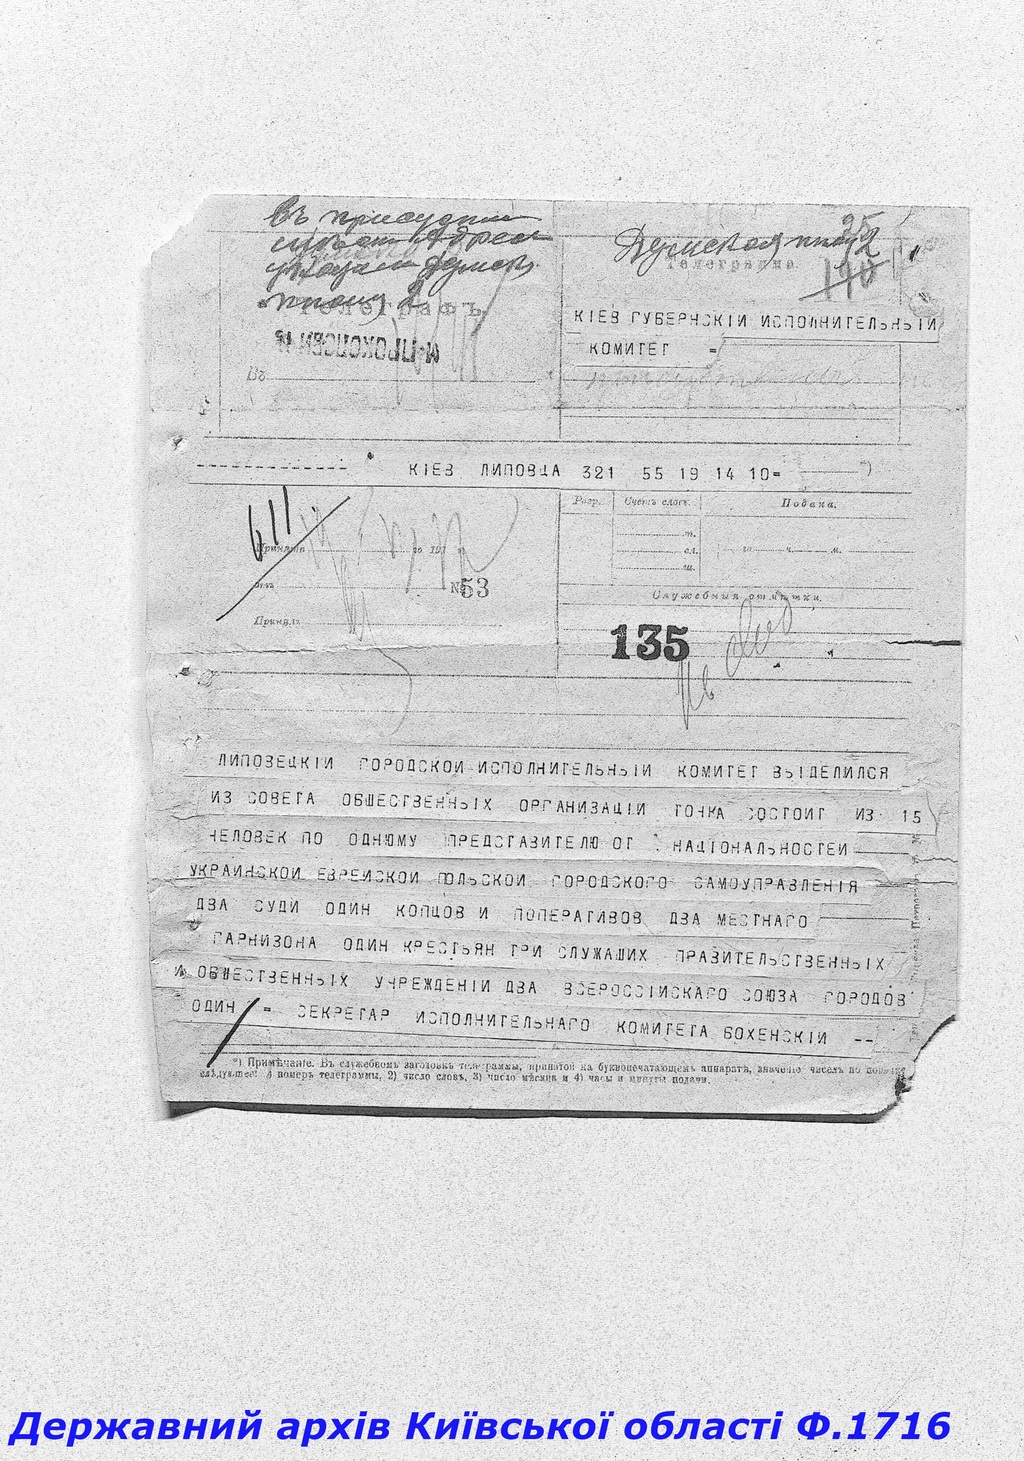 въ присудствии
Адрес
указан Думск.
площ 2
Думская площ 2
25
110
Телеграмма.
Телеграфъ
М. ПРОКОПОВИЧ
КІЕВ ГУБЕРНСКІЙ ИСПОЛНИТЕЛЬНЫІЙ
КОМИТЕТ =
Въ
КІЕВ ЛИПОВЦА 321 55 19 14 10= *)
611
Разр. Счетъ словъ. Подана.
Принята го 191 г.
т.
сл. го ч. м.
ш.
отъ
№53
Служебныя отмѣтки.
Принялъ
135
ЛИПОВЕЦКІЙ ГОРОДСКОЙ ИСПОЛНИТЕЛЬНЫІЙ КОМИТЕТ ВЫІДЕЛИЛСЯ
ИЗ СОВЕТА ОБШЕСТВЕННЫІХ ОРГАНИЗАЦІЙ ТОЧКА СОСТОИТ ИЗ 15
ЧЕЛОВЕК ПО ОДНОМУ ПРЕДСТАВИТЕЛЮ ОТ НАЦІОНАЛЬНОСТЕЙ
УКРАИНСКОЙ ЕВРЕЙСКОЙ ПОЛЬСКОЙ ГОРОДСКОГО САМОУПРАВЛЕНІЯ
ДВА СУДИ ОДИН КОПЦОВ И ПОПЕРАТИВОВ ДВА МЕСТНАГО
ГАРНИЗОНА ОДИН КРЕСТЬЯН ТРИ СЛУЖАШИХ ПРАВИТЕЛЬСТВЕННЫІХ
И ОБШЕСТВЕННЫІХ УЧРЕЖДЕНІЙ ДВА ВСЕРОССІЙСКАГО СОЮЗА ГОРОДОВ
ОДИН = СЕКРЕТАР ИСПОЛНИТЕЛЬНАГО КОМИТЕТА БОХЕНСКІЙ --
*) Примѣчаніе. Въ служебномъ заголовкѣ телеграммы, принятой на буквопечатающемъ аппаратѣ, значеніе чиселъ по
слѣдующее: 1) номеръ телеграммы, 2) число словъ, 3) число мѣсяца и 4) часы и минуты подачи.
Державний архів Київської області Ф.1716